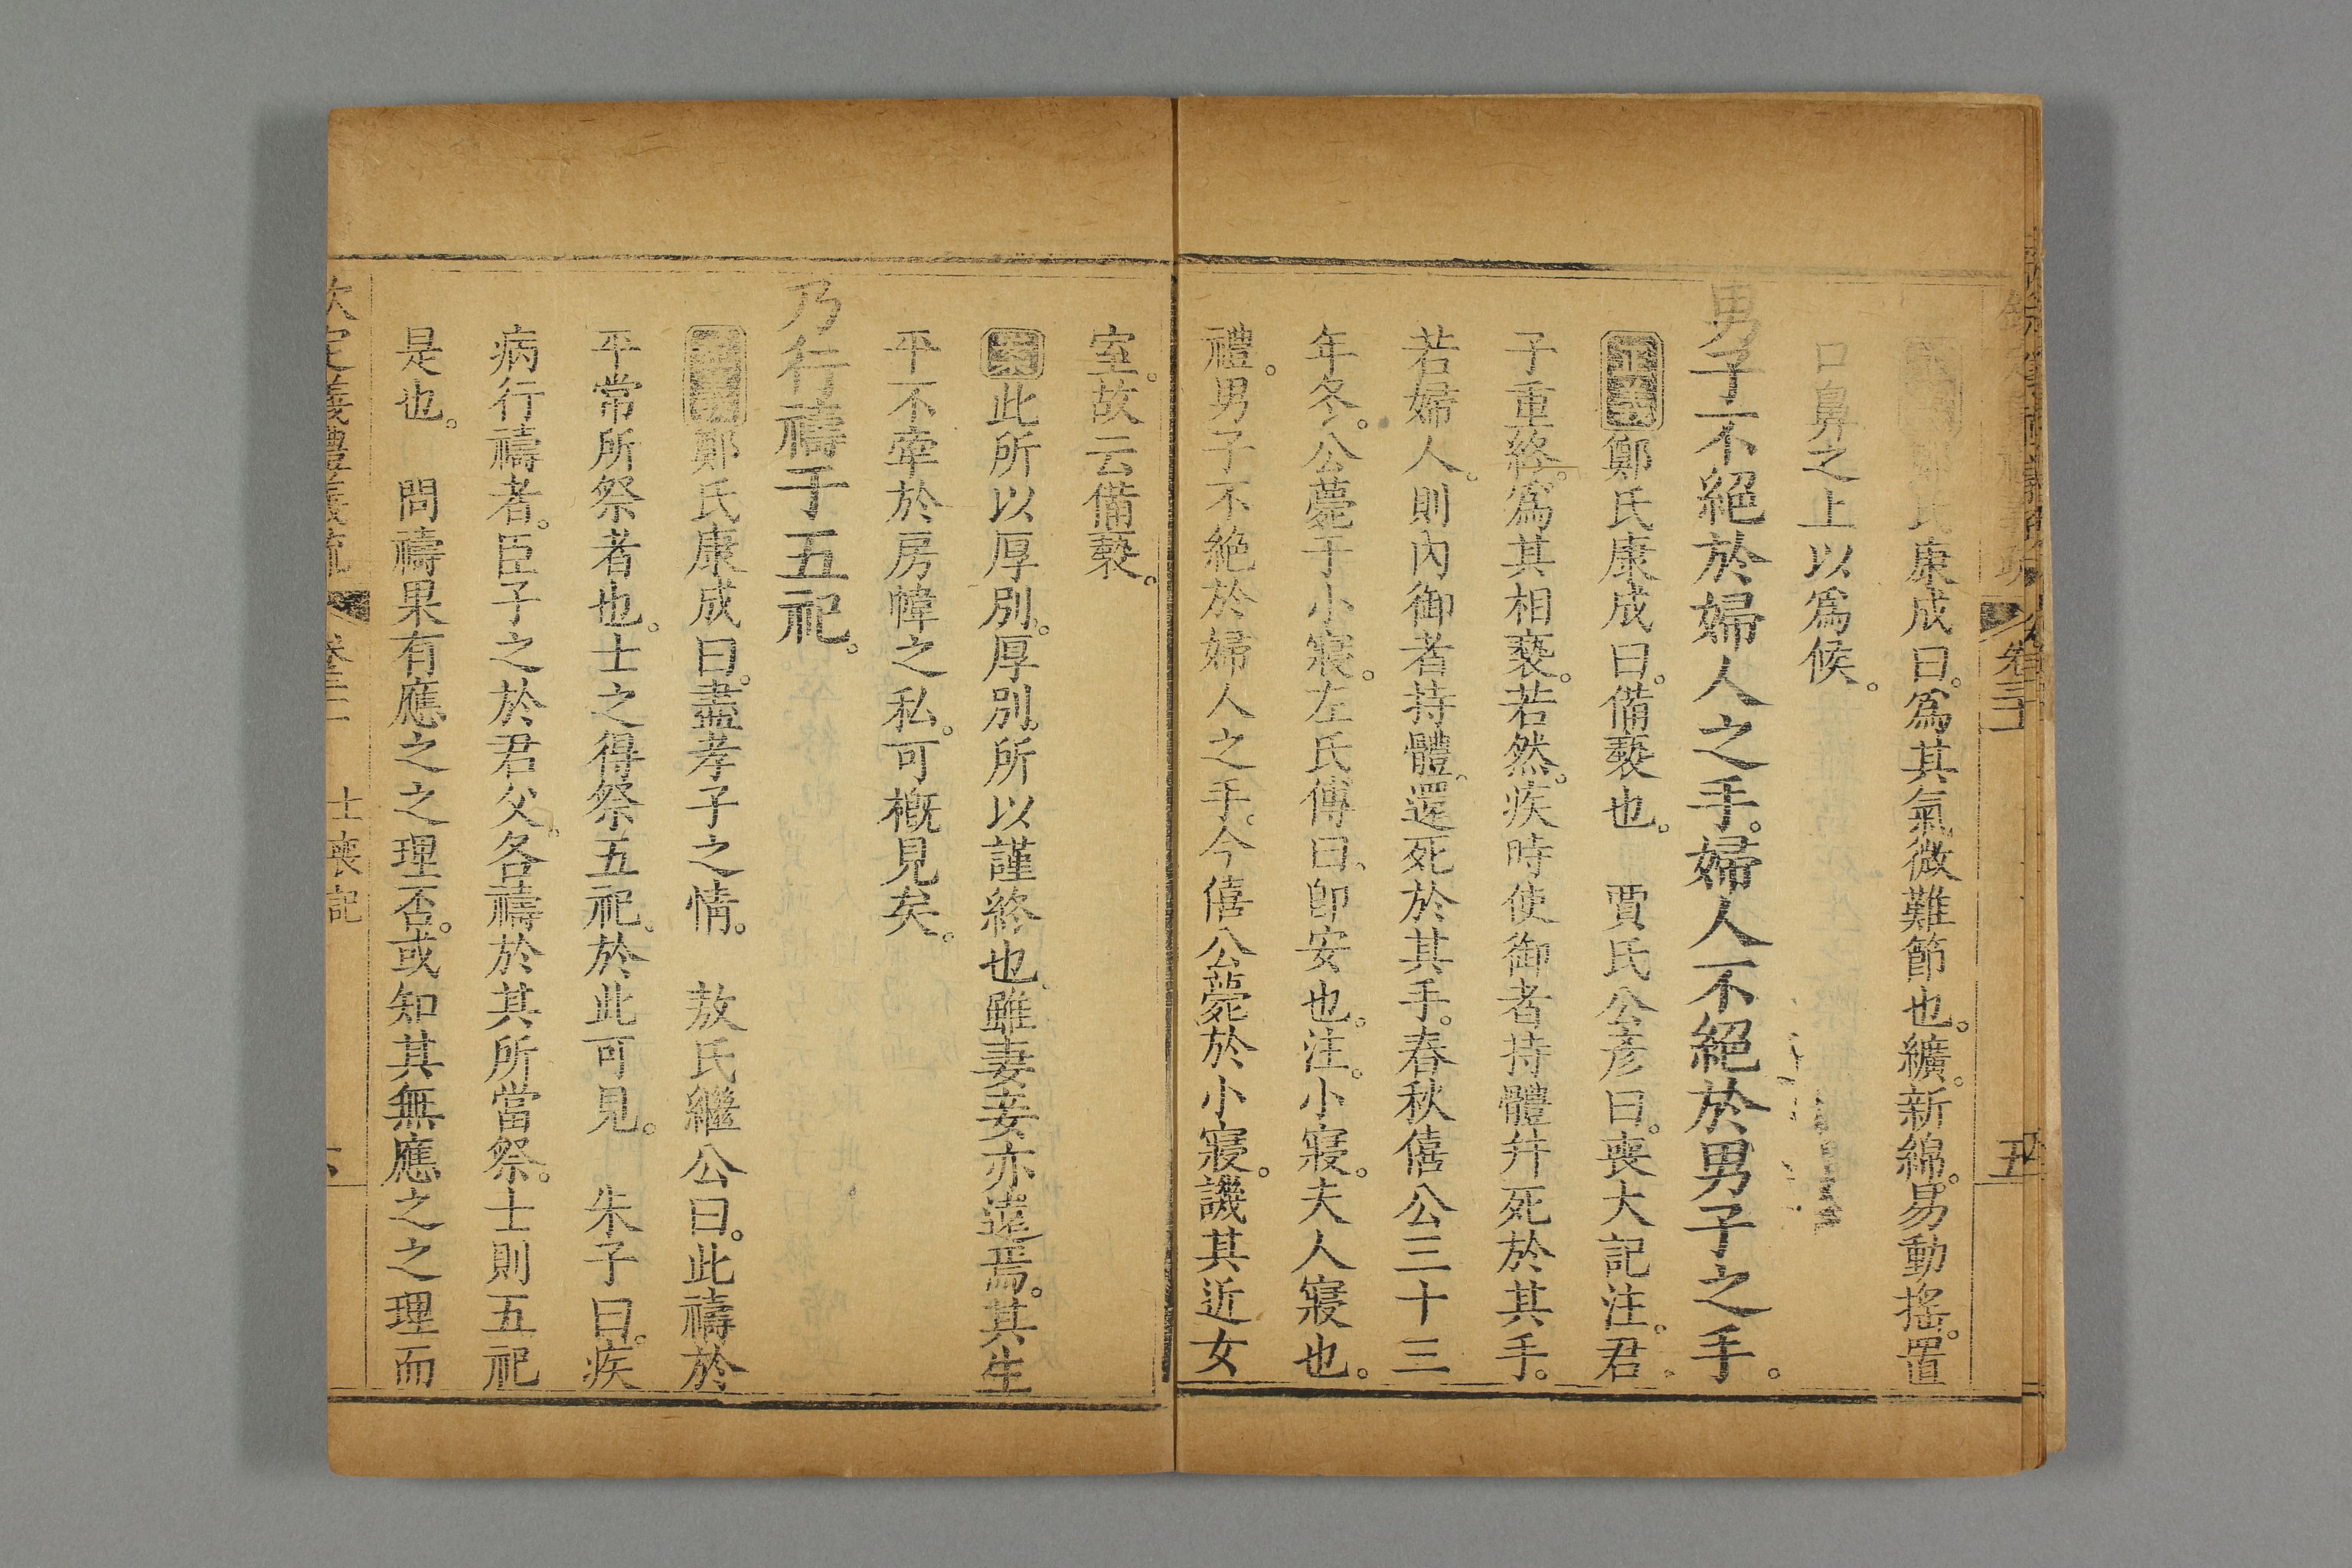 氏康成曰。爲其氣微難節也。纊。新綿。易動搖。置
口鼻之上以爲候。
男子不絕於婦人之手。婦人不絕於男子之手。
正義鄭氏康成曰。備褻也。　賈氏公彥曰。喪大記注。君
子重終。爲其相褻。若然。疾時使御者持體并死於其手。
若婦人。則內御者持體。還死於其手。春秋僖公三十三
年冬。公薨于小寢。左氏傳曰。卽安也。注。小寢。夫人寢也。
禮。男子不絕於婦人之手。今僖公薨於小寢。譏其近女
室。故云備褻。
案此所以厚別。厚別。所以謹終也。雖妻妾亦遠焉。其生
平不牽於房幃之私。可槪見矣。
乃行禱于五祀。
正義鄭氏康成曰。盡孝子之情。　敖氏繼公曰。此禱於
平常所祭者也。士之得祭五祀。於此可見。　朱子曰。疾
病行禱者。臣子之於君父。各禱於其所當祭。士則五祀
是也。　問禱果有應之之理否。或知其無應之之理而
欽定儀禮義疏　卷三　士喪記